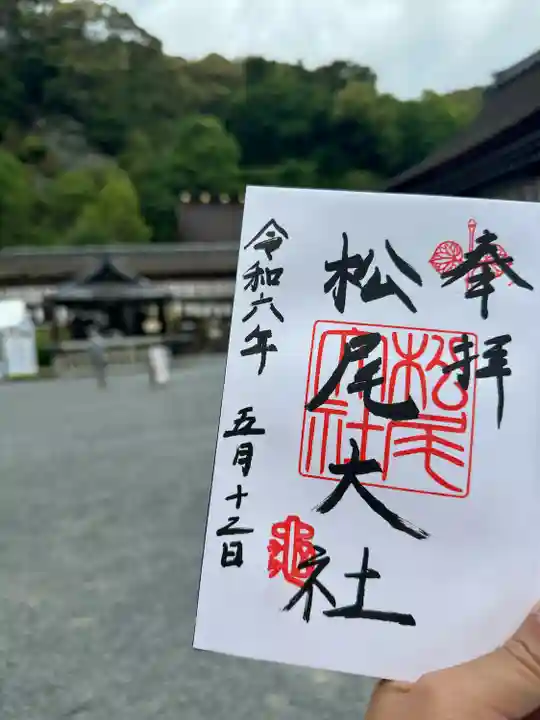 奉拝
松尾大社
松尾大社
令和六年 五月十二日